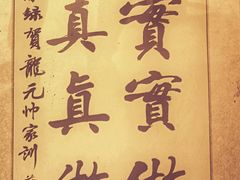 實實做
真真做
錄賀龍元帅家訓